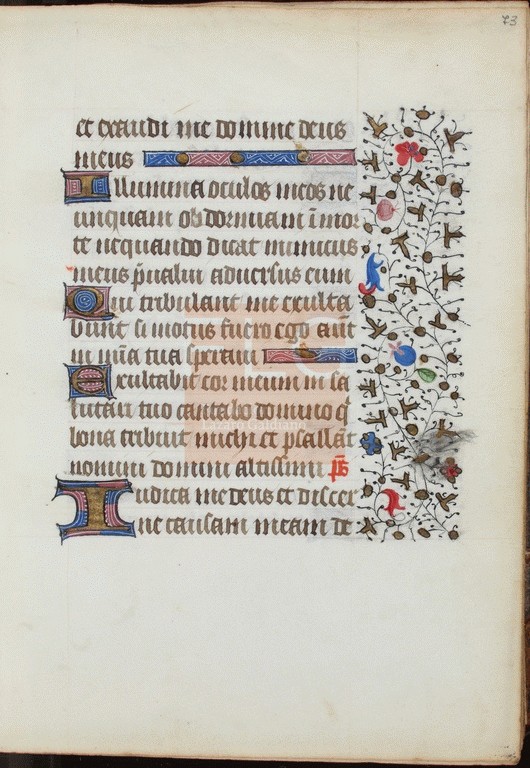 73
et exaudi me domine deus
meus
Illumina oculos meos ne
unquam obdormiam ī mor
te nequando dicat inimicus
meus p̄ualui aduersus eum
Qui tribulant me exulta
bunt si motus fuero ego aūt
in mīa tua speraui
Exultabit cor meum in sa
lutari tuo cantabo domino q̄
bona tribuit michi et psallā
nomini domini altissimi p̄s
Iudica me deus et discer
ne causam meam de
Lázaro Galdiano